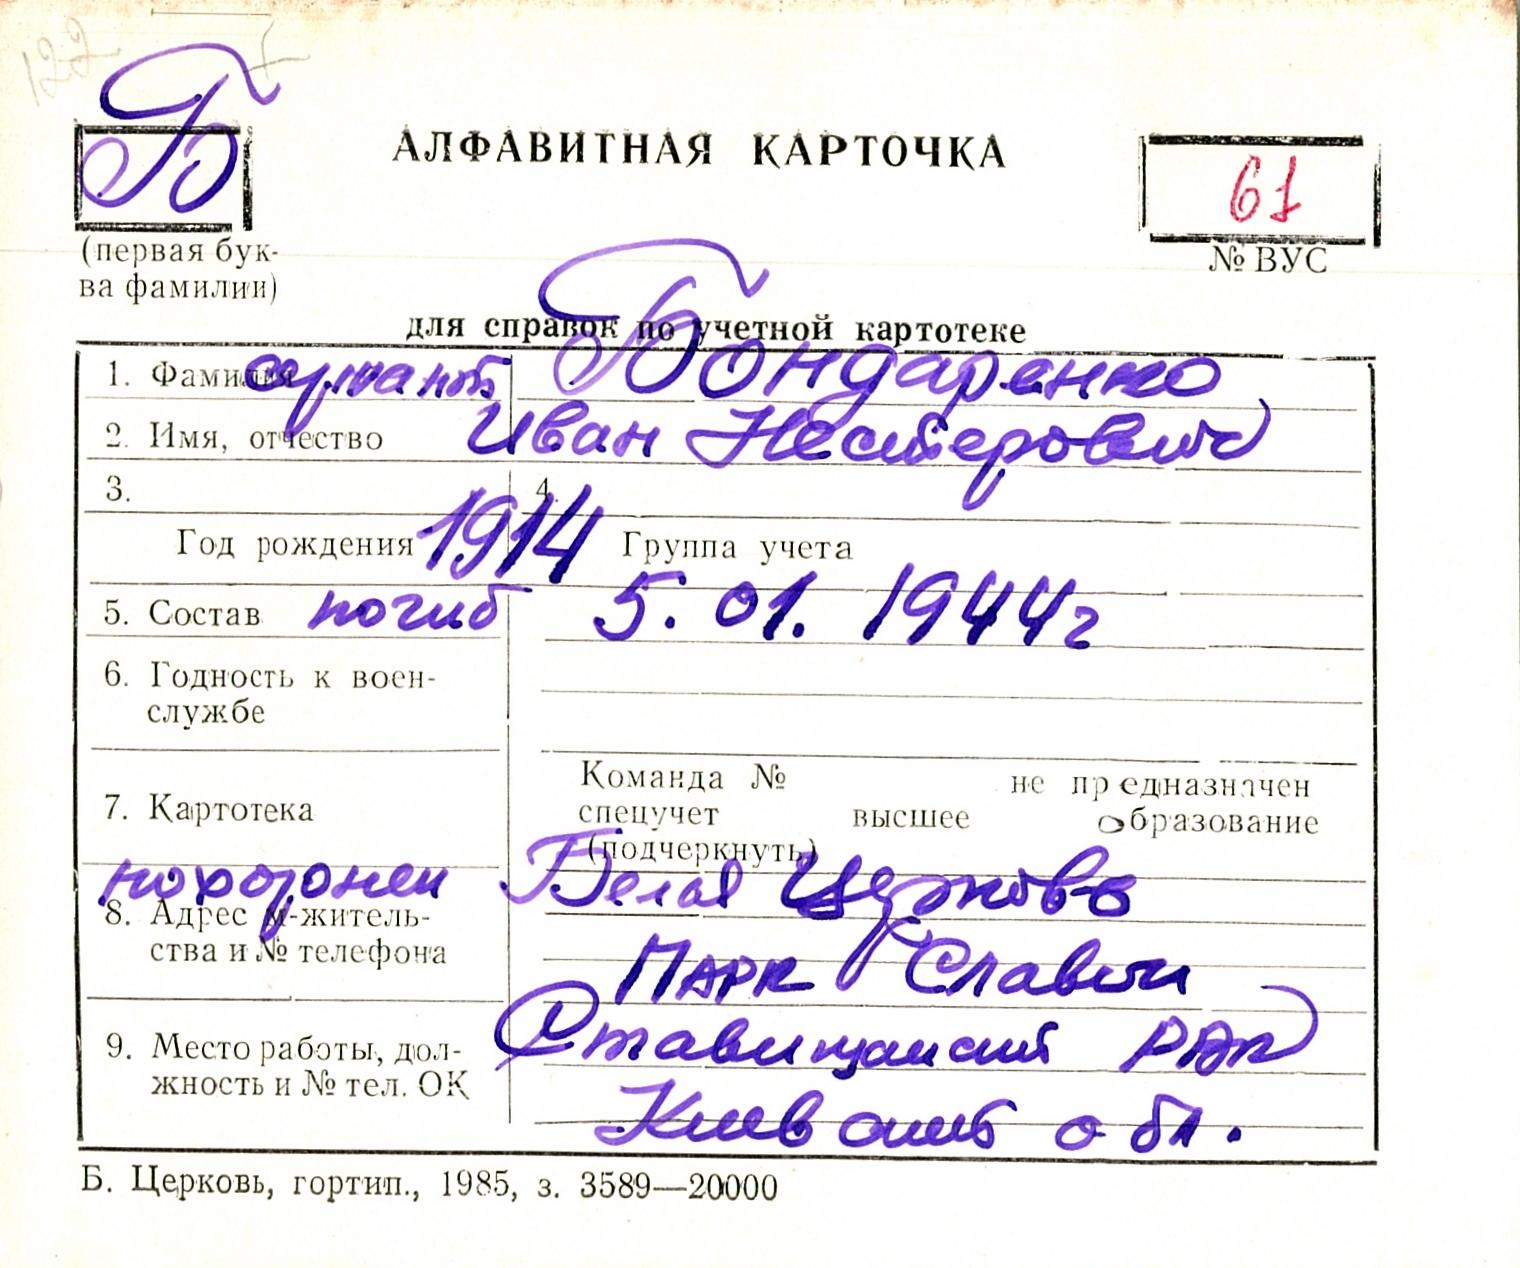 122
Б
АЛФАВИТНАЯ КАРТОЧКА
61
(первая бук-
ва фамилии)
№ ВУС
для справок по учетной картотеке
1. Фамилия сержант Бондаренко
2. Имя, отчество Иван Нестерович
3. 4.
Год рождения 1914 Группа учета
5. Состав погиб 5.01.1944г
6. Годность к воен-
службе
Команда № не предназначен
7. Картотека спецучет высшее образование
(подчеркнуть)
похоронен Белая Церковь
8. Адрес м-житель-
ства и № телефона Парк Славы
9. Место работы, дол- Ставищанский РВК
жность и № тел. ОК
Киевской обл.
Б. Церковь, гортип., 1985, з. 3589—20000